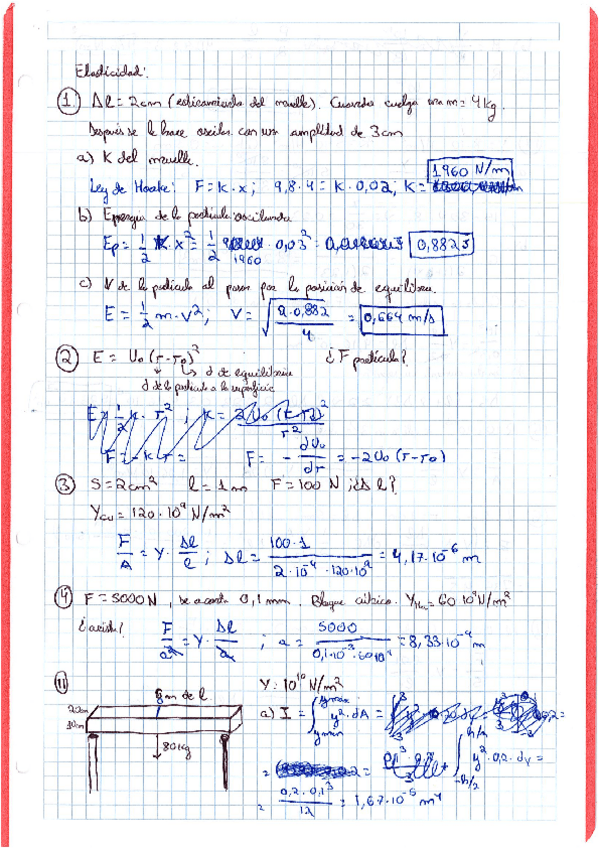 Elasticidad:
① Δl = 2cm (estiramiento del muelle). Cuando cuelga una m = 4 kg.
Después se le hace oscilar con una amplitud de 3cm
a) K del muelle.
Ley de Hooke: F = K·x; 9,8·4 = K·0,02; K = 1960 N/m
b) Energía de la partícula oscilando
Ep = 1/2 K·x² = 1/2 1960 · 0,03² = 0,882 J
c) V de la partícula al pasar por la posición de equilibrio.
E = 1/2 m·v²; V = √(2·0,882 / 4) = 0,664 m/s
② E = U₀ (r-r₀)² ¿F partícula?
d de equilibrio
d de la partícula a la superficie
F = - dU₀/dr = -2U₀ (r-r₀)
③ S = 2cm² l = 1m F = 100 N ¿Δl?
Ycu = 120·10⁹ N/m²
F/A = Y · Δl/l ; Δl = 100·1 / 2·10⁻⁴·120·10⁹ = 4,17·10⁻⁶ m
④ F = 5000N, se acorta 0,1mm. Bloque cúbico. Y = 60·10⁹ N/m²
¿arista? F/a² = Y · Δl/a ; a = 5000 / 0,1·10⁻³·60·10⁹ = 8,33·10⁻⁴ m
⑪ m de l Y: 10¹⁰ N/m²
20cm
10cm
80kg
a) I = ∫ymin ymax y²·dA =
∫-h/2 h/2 y²·0,2·dy =
= 0,2·0,1³ / 12 = 1,67·10⁻⁵ m⁴